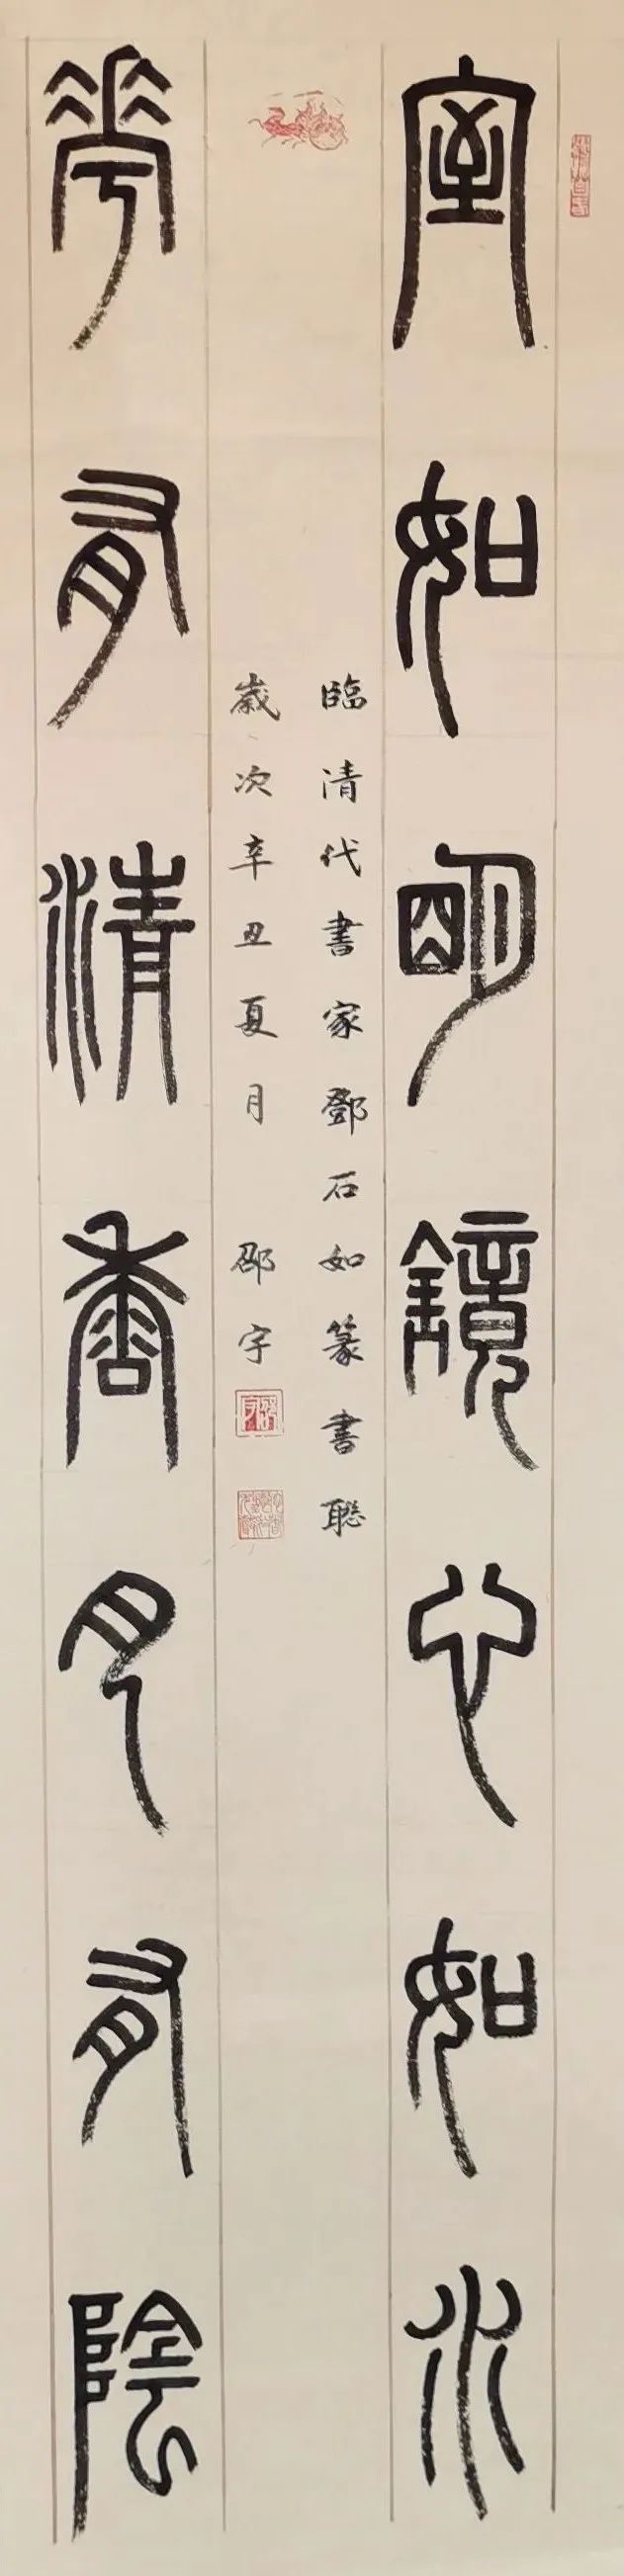 室如明鏡心如水
臨清代書家鄧石如篆書聯
歲次辛丑夏月 邵宇
華有清香月有陰